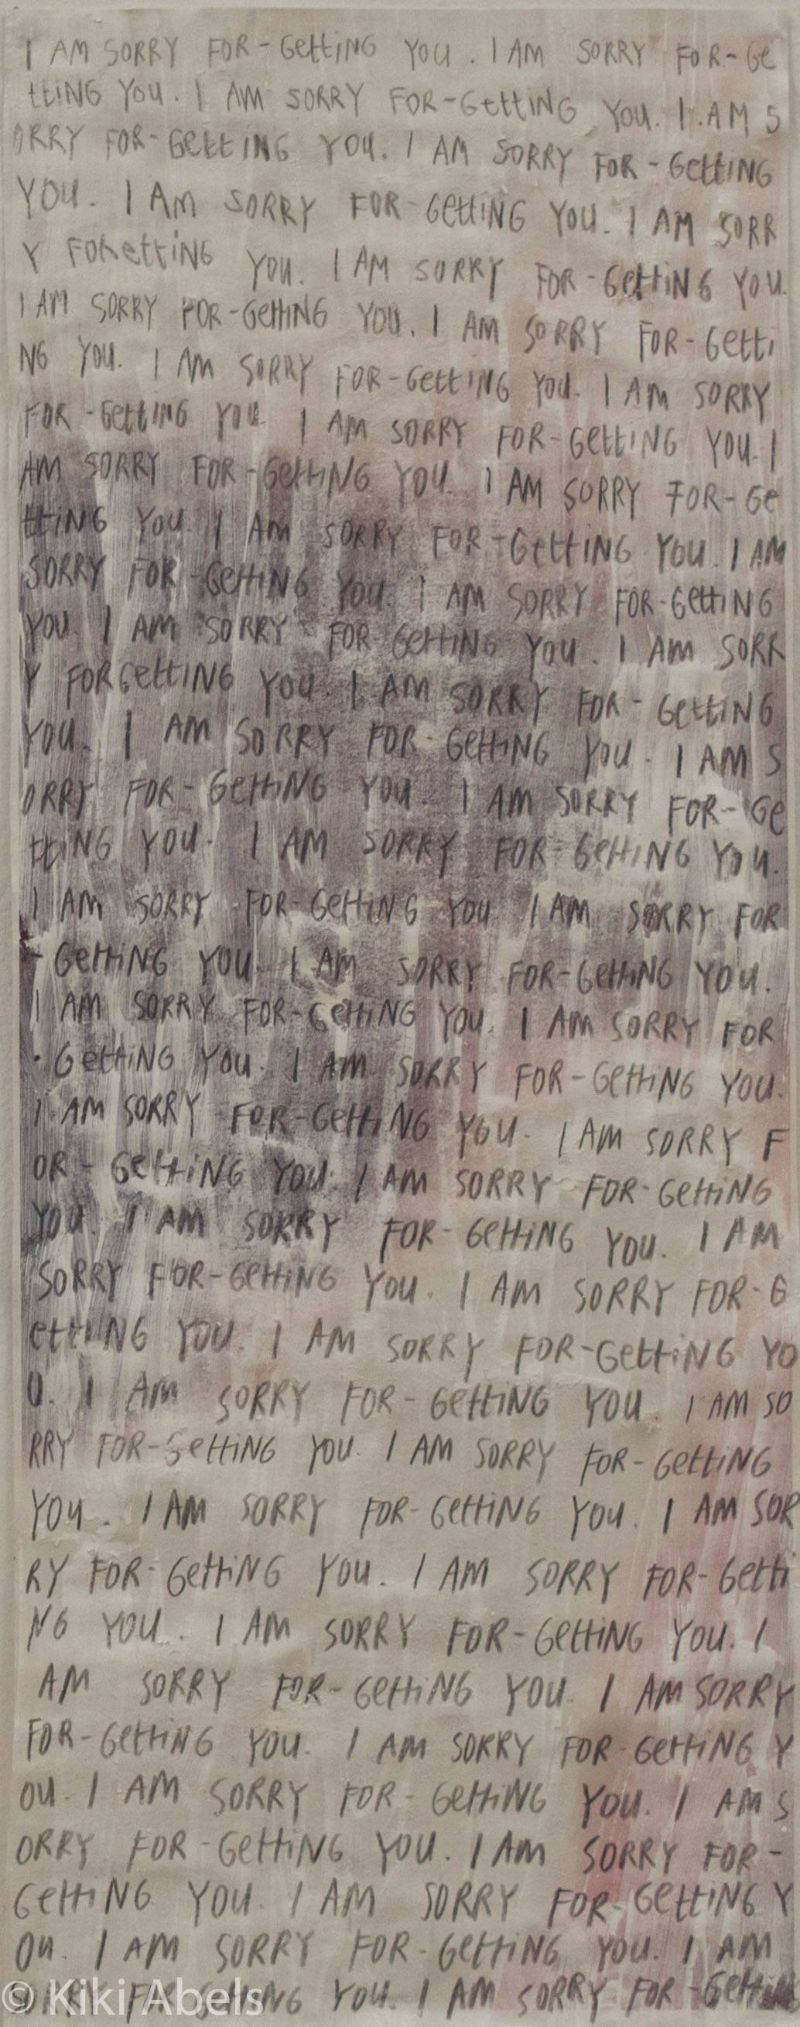 I AM SORRY FOR-GettING YOU. I AM SORRY FOR-Ge
ttING YOU. I AM SORRY FOR-GettING YOU. I AM S
ORRY FOR-GettING YOU. I AM SORRY FOR-GettING
YOU. I AM SORRY FOR-GettING YOU. I AM SORR
Y FORettING YOU. I AM SORRY FOR-GettING YOU.
I AM SORRY FOR-GettING YOU. I AM SORRY FOR-Getti
NG YOU. I AM SORRY FOR-GettING YOU. I AM SORRY
FOR-GettING YOU. I AM SORRY FOR-GettING YOU. I
AM SORRY FOR-GettING YOU. I AM SORRY FOR-Ge
ttING YOU. I AM SORRY FOR-GettING YOU. I AM
SORRY FOR-GettING YOU. I AM SORRY FOR-GettING
YOU. I AM SORRY FOR GettING YOU. I AM SORR
Y FORGettING YOU. I AM SORRY FOR-GettING
YOU. I AM SORRY FOR-GettING YOU. I AM S
ORRY FOR-GettING YOU. I AM SORRY FOR-Ge
ttING YOU. I AM SORRY FOR-GettING YOU.
I AM SORRY FOR-GettING YOU I AM SORRY FOR
-GettING YOU. I AM SORRY FOR-GettING YOU.
I AM SORRY FOR-GettING YOU. I AM SORRY FOR
-GettING YOU. I AM SORRY FOR-GettING YOU.
I AM SORRY FOR-GettING YOU. I AM SORRY F
OR-GettING YOU. I AM SORRY FOR-GettING
YOU. I AM SORRY FOR-GettING YOU. I AM
SORRY FOR-GettING YOU. I AM SORRY FOR-G
ettING YOU. I AM SORRY FOR-GettING YO
U. I AM SORRY FOR-GettING YOU. I AM SO
RRY FOR-GettING YOU. I AM SORRY FOR-GettING
YOU. I AM SORRY FOR-GettING YOU. I AM SOR
RY FOR-GettING YOU. I AM SORRY FOR-Getti
NG YOU. I AM SORRY FOR-GettING YOU. I
AM SORRY FOR-GettING YOU. I AM SORRY
FOR-GettING YOU. I AM SORRY FOR-GettING Y
OU. I AM SORRY FOR-GettING YOU. I AM S
ORRY FOR-GettING YOU. I AM SORRY FOR-
GettING YOU. I AM SORRY FOR-GettING Y
OU. I AM SORRY FOR-GettING YOU. I AM
SORRY FOR-GettING YOU. I AM SORRY FOR-GettING
© Kiki Abels